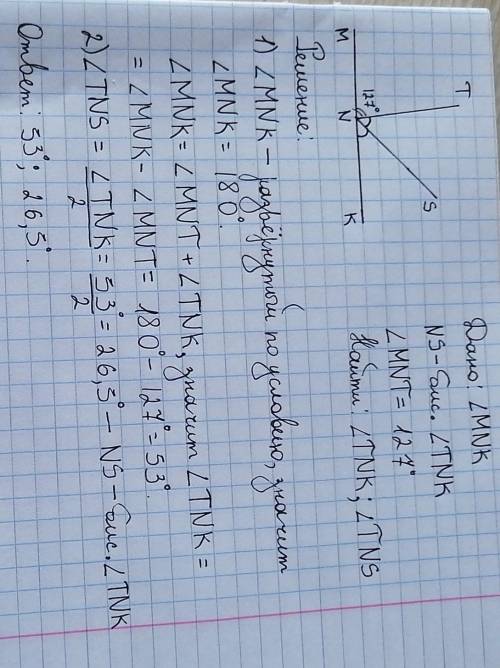 M N K
127°
T
S
Дано: ∠MNK
NS - бис. ∠TNK
∠MNT = 127°
Найти: ∠TNK; ∠TNS
Решение:
1) ∠MNK – развёрнутый по условию, значит
∠MNK = 180°.
∠MNK = ∠MNT + ∠TNK, значит ∠TNK =
= ∠MNK - ∠MNT = 180° - 127° = 53°.
2) ∠TNS = ∠TNK/2 = 53°/2 = 26,5° – NS - бис. ∠TNK
Ответ: 53°; 26,5°.